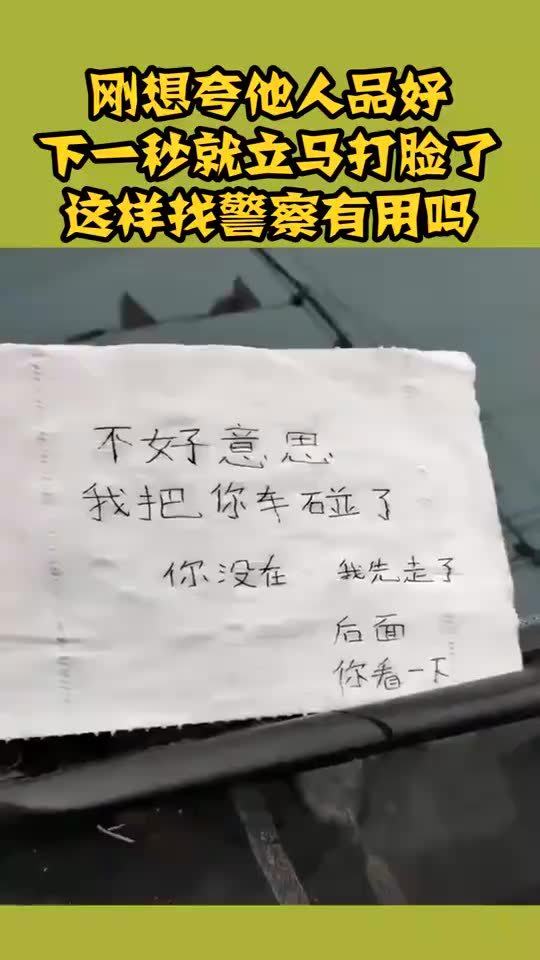 刚想夸他人品好
下一秒就立马打脸了
这样找警察有用吗
不好意思
我把你车碰了
你没在 我先走了
后面
你看一下